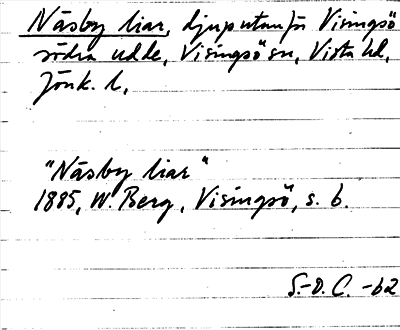 Näsby liar, djup utanför Visingsö
södra udde, Visingsö sn, Vista hd,
Jönk. l.
"Näsby liar"
1885, W. Berg, Visingsö, s. 6.
S.-O.C. -62